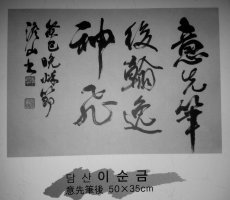 意先筆
後翰逸
神飛
癸巳晩秋節
山
담 산 이 순 금
意先筆後 50×35cm